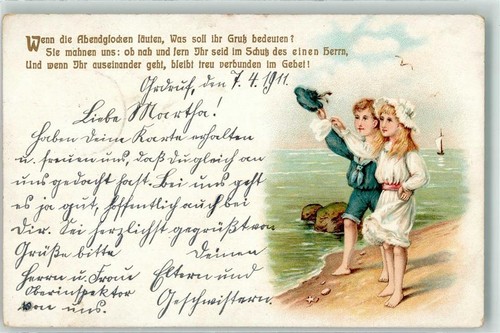 Wenn die Abendglocken läuten, Was soll ihr Gruß bedeuten?
Sie mahnen uns: ob nah und fern Ihr seid im Schutz des einen Herrn,
Und wenn Ihr auseinander geht, bleibt treu verbunden im Gebet!
Ordruf, den 7. 4. 1911.
Liebe Martha!
Haben Deine Karte erhalten
u. freuen uns, daß du gleich an
uns gedacht hast. Bei uns geht
es ja gut, hoffentlich auch bei
Dir. Sei herzlichst gegrüßt von
Grüße bitte Deinen
Herrn u. Frau Eltern und
Oberinspektor Geschwistern.
von uns.